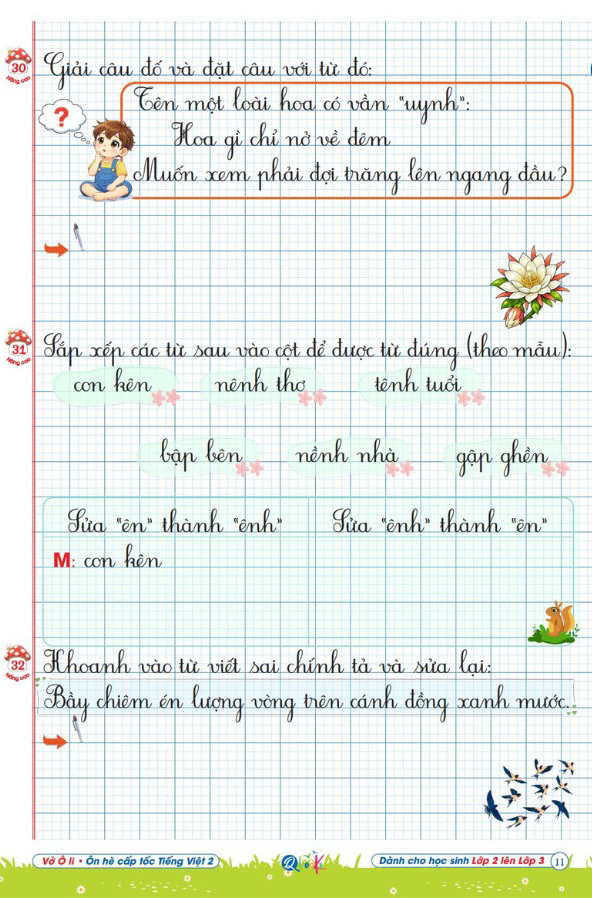 30
Nâng cao
Giải câu đố và đặt câu với từ đó:
Tên một loài hoa có vần "uynh":
?
Hoa gì chỉ nở về đêm
Muốn xem phải đợi trăng lên ngang đầu?
31
Nâng cao
Sắp xếp các từ sau vào cột để được từ đúng (theo mẫu):
con kên nênh thơ tênh tuổi
bập bên nềnh nhà gập ghền
Sửa "ên" thành "ênh" Sửa "ênh" thành "ên"
M: con kên
32
Nâng cao
Khoanh vào từ viết sai chính tả và sửa lại:
Bầy chiêm én lượng vòng trên cánh đồng xanh mước.
Vở Ô li • Ôn hè cấp tốc Tiếng Việt 2 QoK Dành cho học sinh Lớp 2 lên Lớp 3 11